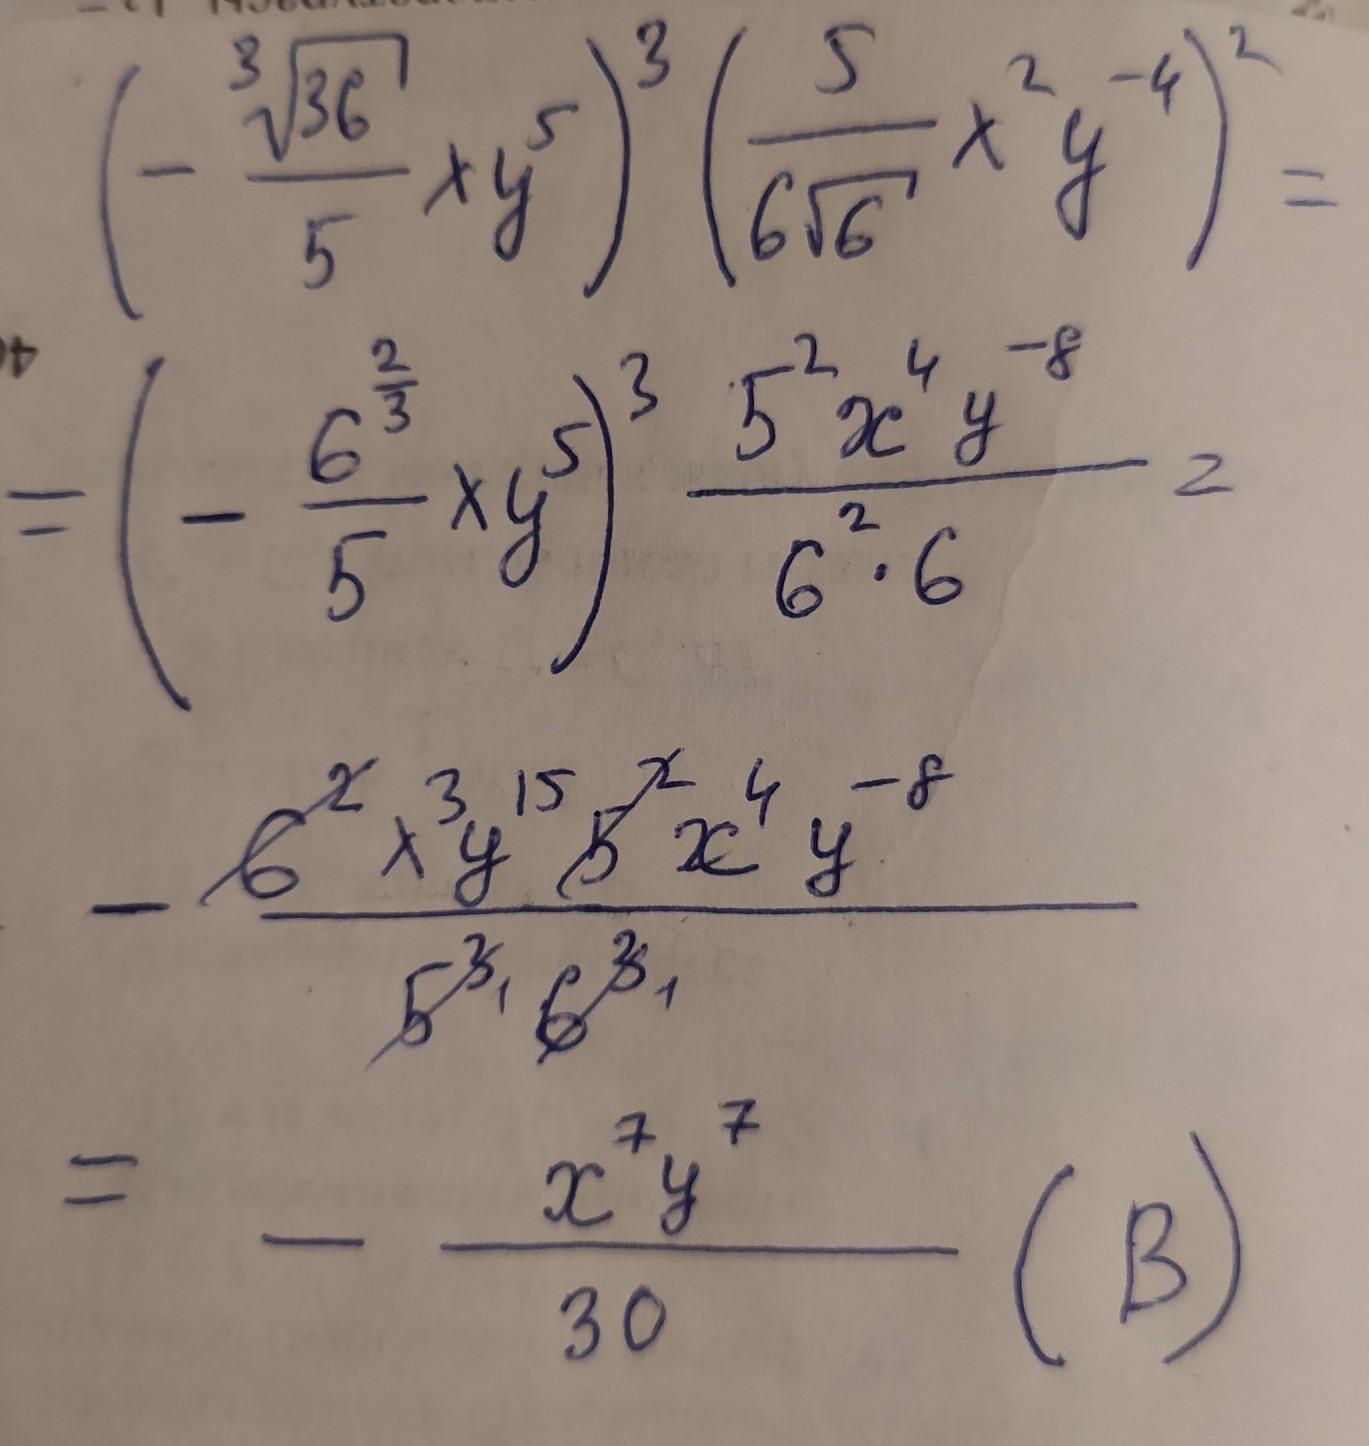 (- ∛36/5 xy⁵)³ (5/(6√6) x²y⁻⁴)² =
= (- 6^(2/3)/5 xy⁵)³ 5²x⁴y⁻⁸/(6²·6) =
- 6² x³y¹⁵ 5² x⁴ y⁻⁸/(5³ 6³)
= - x⁷y⁷/30 (B)